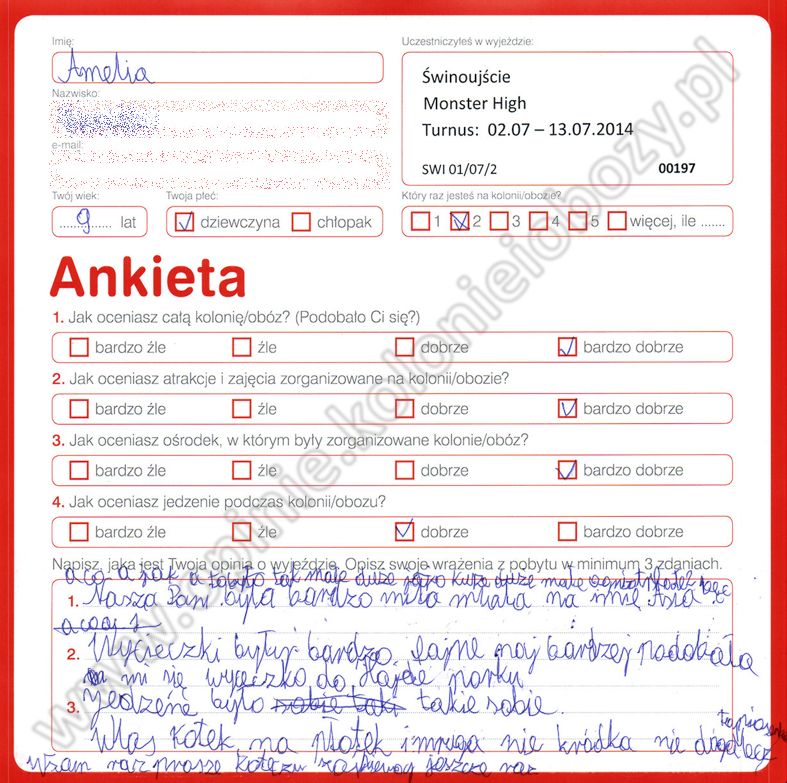 Imię:
Amelia
Nazwisko:
e-mail:
Uczestniczyłeś w wyjeździe:
Świnoujście
Monster High
Turnus: 02.07 – 13.07.2014
SWI 01/07/2 00197
Twój wiek: Twoja płeć: Który raz jesteś na kolonii/obozie?
9 lat dziewczyna chłopak 1 2 3 4 5 więcej, ile .......
Ankieta
1. Jak oceniasz całą kolonię/obóz? (Podobało Ci się?)
bardzo źle źle dobrze bardzo dobrze
2. Jak oceniasz atrakcje i zajęcia zorganizowane na kolonii/obozie?
bardzo źle źle dobrze bardzo dobrze
3. Jak oceniasz ośrodek, w którym były zorganizowane kolonie/obóz?
bardzo źle źle dobrze bardzo dobrze
4. Jak oceniasz jedzenie podczas kolonii/obozu?
bardzo źle źle dobrze bardzo dobrze
Napisz, jaka jest Twoja opinia o wyjeździe. Opisz swoje wrażenia z pobytu w minimum 3 zdaniach.
a co a jak a to tak małe duże duże małe
1. Nasza Pani była bardzo miła miała na imię Asia
2. Wycieczki były bardzo fajne naj bardzej podobała
mi się wycieczko do parku
3. Jedzene było takie sobie.
Wlas kotek na płotek i mruga nie krótka nie długa lecz
raz prosze koteczu jeszcze raz
www.opinie.kolonieiobozy.pl